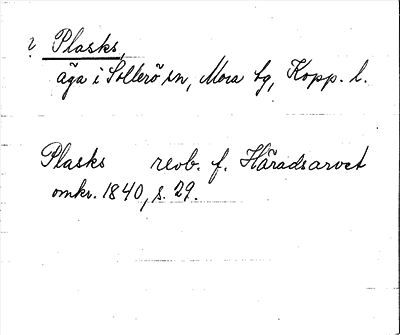 ? Plasks,
äga i Sollerö sn, Mora tg, Kopp. l.
Plasks reob. f. Häradsarvet
omkr. 1840, s. 29.